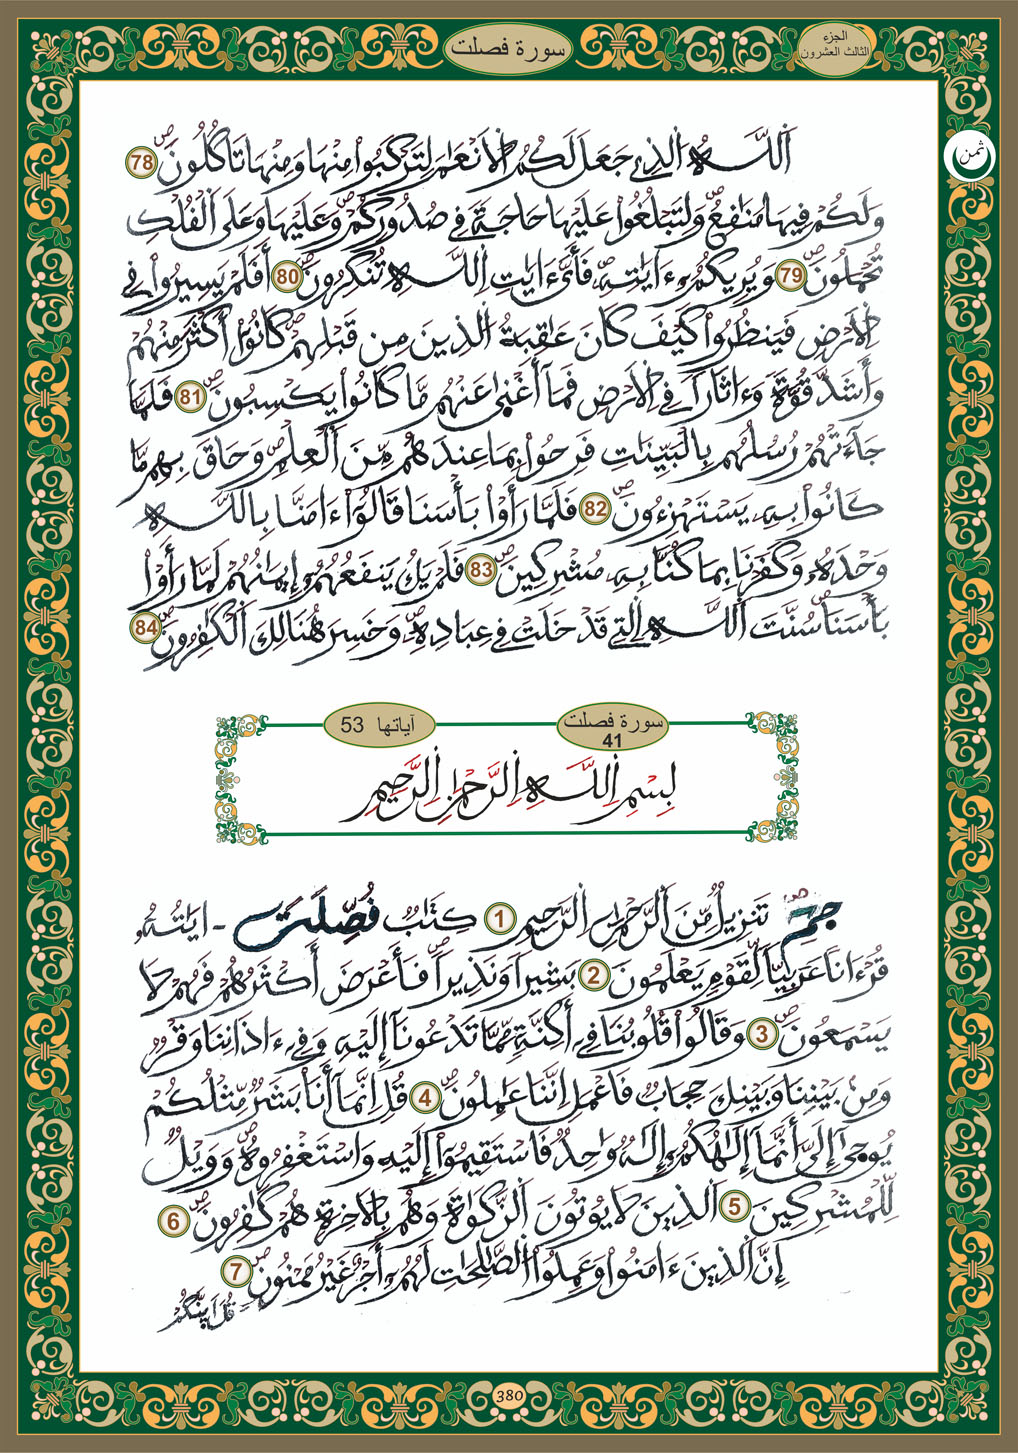 سورة فصلت
الجزء
الثالث العشرون
ثمن
اَ۬للَّهُ اُ۬لذِے جَعَلَ لَكُمُ اُ۬لَانْعَٰمَ لِتَرْكَبُواْ مِنْهَا وَمِنْهَا تَاكُلُونَۖ 78
وَلَكُمْ فِيهَا مَنَٰفِعُۖ وَلِتَبْلُغُواْ عَلَيْهَا حَاجَةٗ فِے صُدُورِكُمْۖ وَعَلَيْهَا وَعَلَى اَ۬لْفُلْكِ
تُحْمَلُونَۖ 79 وَيُرِيكُمُۥٓ ءَايَٰتِهِۦۖ فَأَيَّ ءَايَٰتِ اِ۬للَّهِ تُنكِرُونَۖ 80 أَفَلَمْ يَسِيرُواْ فِے
اِ۬لَارْضِ فَيَنظُرُواْ كَيْفَ كَانَ عَٰقِبَةُ اُ۬لذِينَ مِن قَبْلِهِمْۖ كَانُوٓاْ أَكْثَرَ مِنْهُمْ
وَأَشَدَّ قُوَّةٗ وَءَاثَاراٗ فِے اِ۬لَارْضِ فَمَآ أَغْنَىٰ عَنْهُم مَّا كَانُواْ يَكْسِبُونَۖ 81 فَلَمَّا
جَآءَتْهُمْ رُسُلُهُم بِالْبَيِّنَٰتِ فَرِحُواْ بِمَا عِندَهُم مِّنَ اَ۬لْعِلْمِۖ وَحَاقَ بِهِم مَّا
كَانُواْ بِهِۦ يَسْتَهْزِءُونَۖ 82 فَلَمَّا رَأَوْاْ بَأْسَنَا قَالُوٓاْ ءَامَنَّا بِاللَّهِ
وَحْدَهُۥ وَكَفَرْنَا بِمَا كُنَّا بِهِۦ مُشْرِكِينَۖ 83 فَلَمْ يَكُ يَنفَعُهُمُۥٓ إِيمَٰنُهُمْ لَمَّا رَأَوْاْ
بَأْسَنَاۖ سُنَّتَ اَ۬للَّهِ اِ۬لتِے قَدْ خَلَتْ فِے عِبَادِهِۦۖ وَخَسِرَ هُنَالِكَ اَ۬لْكَٰفِرُونَۖ 84
سورة فصلت آياتها 53
41
بِسْمِ اِ۬للَّهِ اِ۬لرَّحْمَٰنِ اِ۬لرَّحِيمِ
حمٓۖ تَنزِيلٞ مِّنَ اَ۬لرَّحْمَٰنِ اِ۬لرَّحِيمِ 1 كِتَٰبٞ فُصِّلَتَ ايَٰتُهُۥ
قُرْءَاناً عَرَبِيّاٗ لِّقَوْمٖ يَعْلَمُونَ 2 بَشِيراٗ وَنَذِيراٗۖ فَأَعْرَضَ أَكْثَرُهُمْ فَهُمْ لَا
يَسْمَعُونَۖ 3 وَقَالُواْ قُلُوبُنَا فِےٓ أَكِنَّةٖ مِّمَّا تَدْعُونَآ إِلَيْهِ وَفِےٓ ءَاذَانِنَا وَقْرٞ
وَمِنۢ بَيْنِنَا وَبَيْنِكَ حِجَابٞ فَاعْمَلِ اِنَّنَا عَٰمِلُونَۖ 4 قُلِ اِنَّمَآ أَنَا بَشَرٞ مِّثْلُكُمْ
يُوحَىٰٓ إِلَيَّ أَنَّمَآ إِلَٰهُكُمُۥٓ إِلَٰهٞ وَٰحِدٞ فَاسْتَقِيمُوٓاْ إِلَيْهِ وَاسْتَغْفِرُوهُۖ وَوَيْلٞ
لِّلْمُشْرِكِينَ 5 اَ۬لذِينَ لَا يُوتُونَ اَ۬لزَّكَوٰةَ وَهُم بِالَاخِرَةِ هُمْ كَٰفِرُونَۖ 6
إِنَّ اَ۬لذِينَ ءَامَنُواْ وَعَمِلُواْ اُ۬لصَّٰلِحَٰتِ لَهُمُۥٓ أَجْرٌ غَيْرُ مَمْنُونٖۖ 7
قُلَ اَينَّكُمْ
380